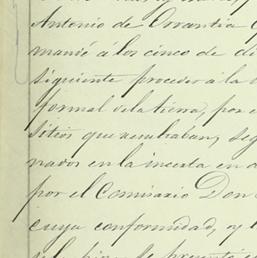 Antonio de Orrantia
mandó a los cinco de di
siguiente proceder á la
formal de la tierra, por
sitios que acababan, seg
nados en la inserta en
por el Comisario Don
cuya conformidad, y